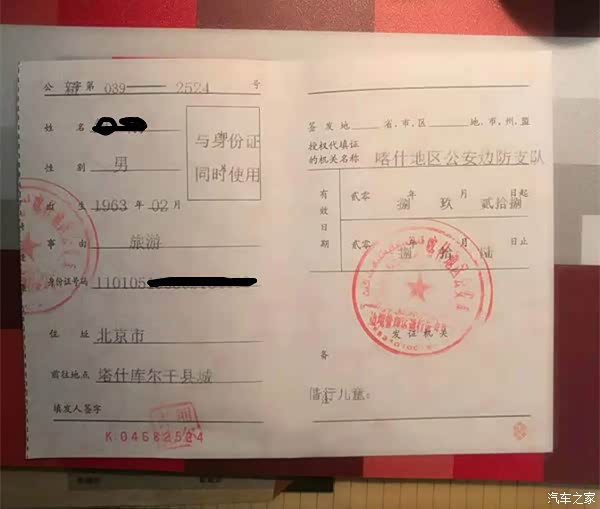 公 辩 第 039 2524 号
姓 名
与身份证
同时使用
性 别 男
出 生 1963 年 02 月
事 由 旅游
身份证号码 110105
住 址 北京市
前往地点 塔什库尔干县城
填发人签字
K 04682524
签发地 省.市.区 地.市.州.盟
授权代填证
的机关名称 喀什地区公安边防支队
有效日期
贰零 捌 年 玖 月 贰拾捌 日起
贰零 捌 年 拾 月 陆 日止
发 证 机 关
备
偕行儿童。
汽车之家